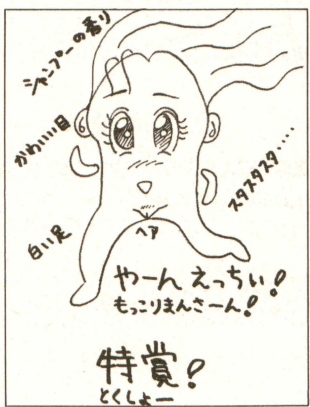 シャンプーの香り
かわいい目
スタスタスタ・・・・・
白い足
ヘア
やーん えっちぃ!
もっこりまんさーん!
特賞!
とくしょー